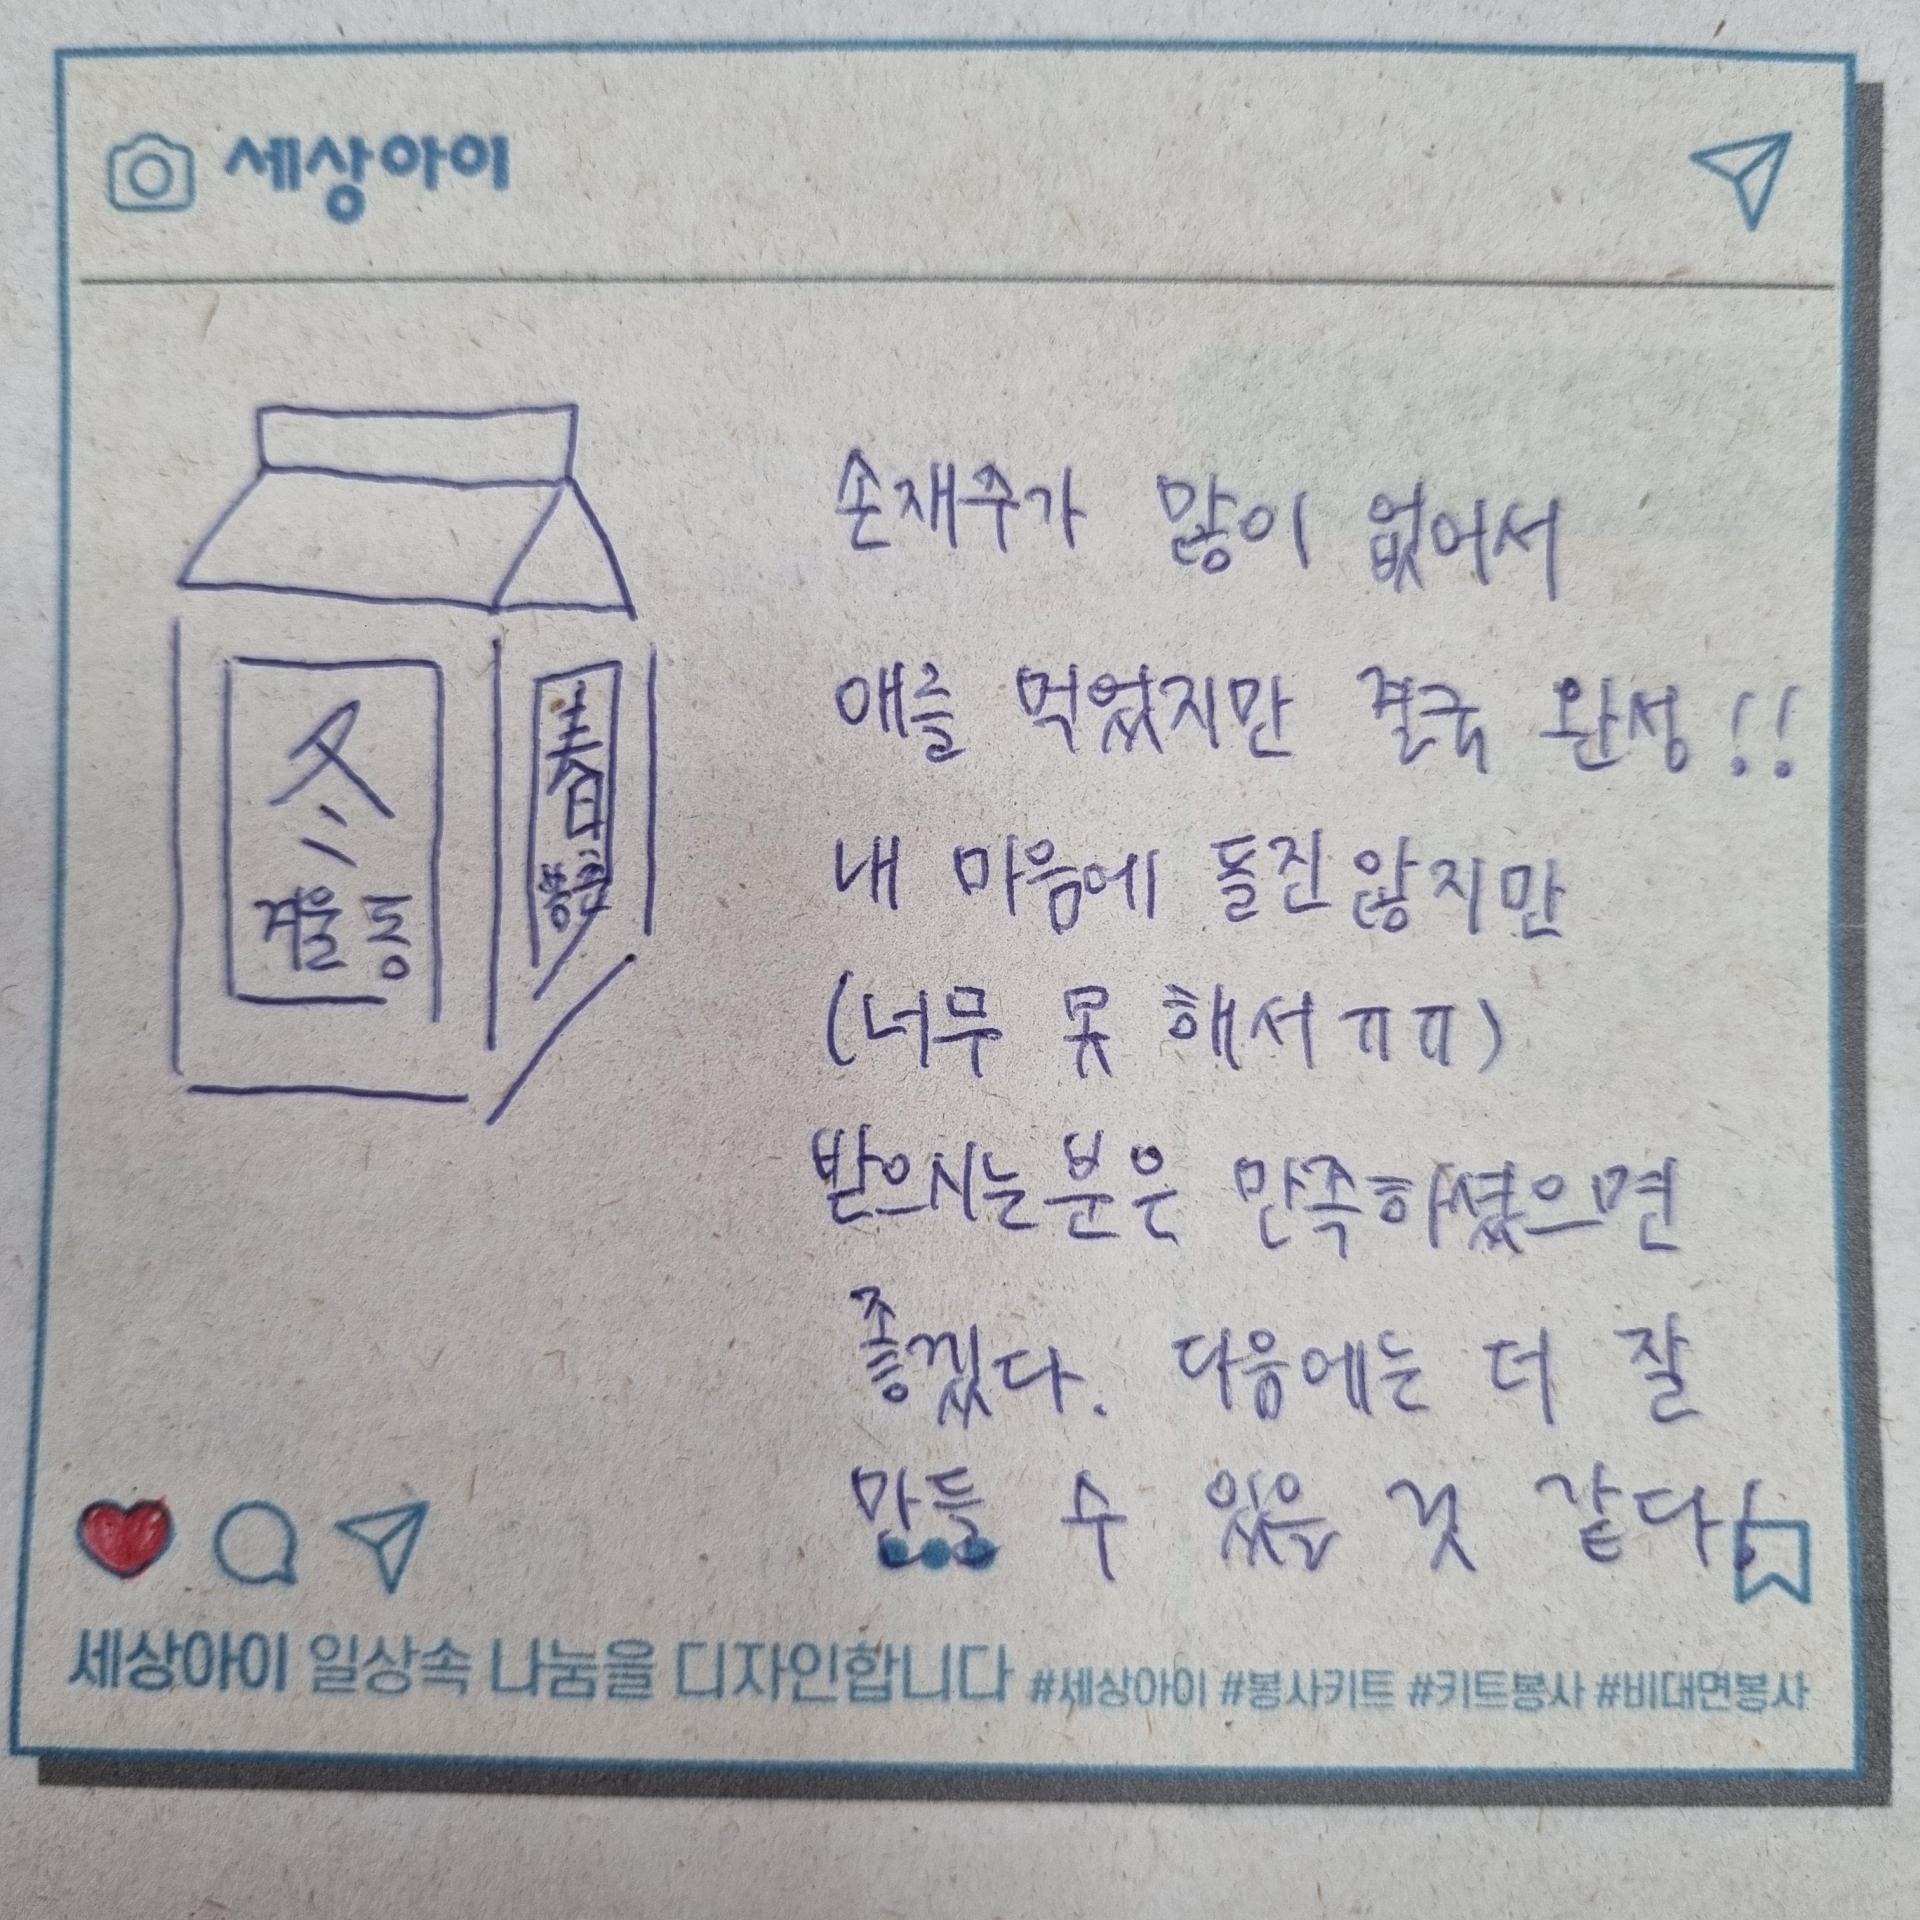 세상아이
冬
겨울 동
春
봄 춘
손재주가 많이 없어서
애를 먹었지만 결국 완성!!
내 마음에 들진 않지만
(너무 못 해서ㅠㅠ)
받으시는 분은 만족하셨으면
좋겠다. 다음에는 더 잘
만들 수 있을 것 같다!
세상아이 일상속 나눔을 디자인합니다 #세상아이 #봉사키트 #키트봉사 #비대면봉사